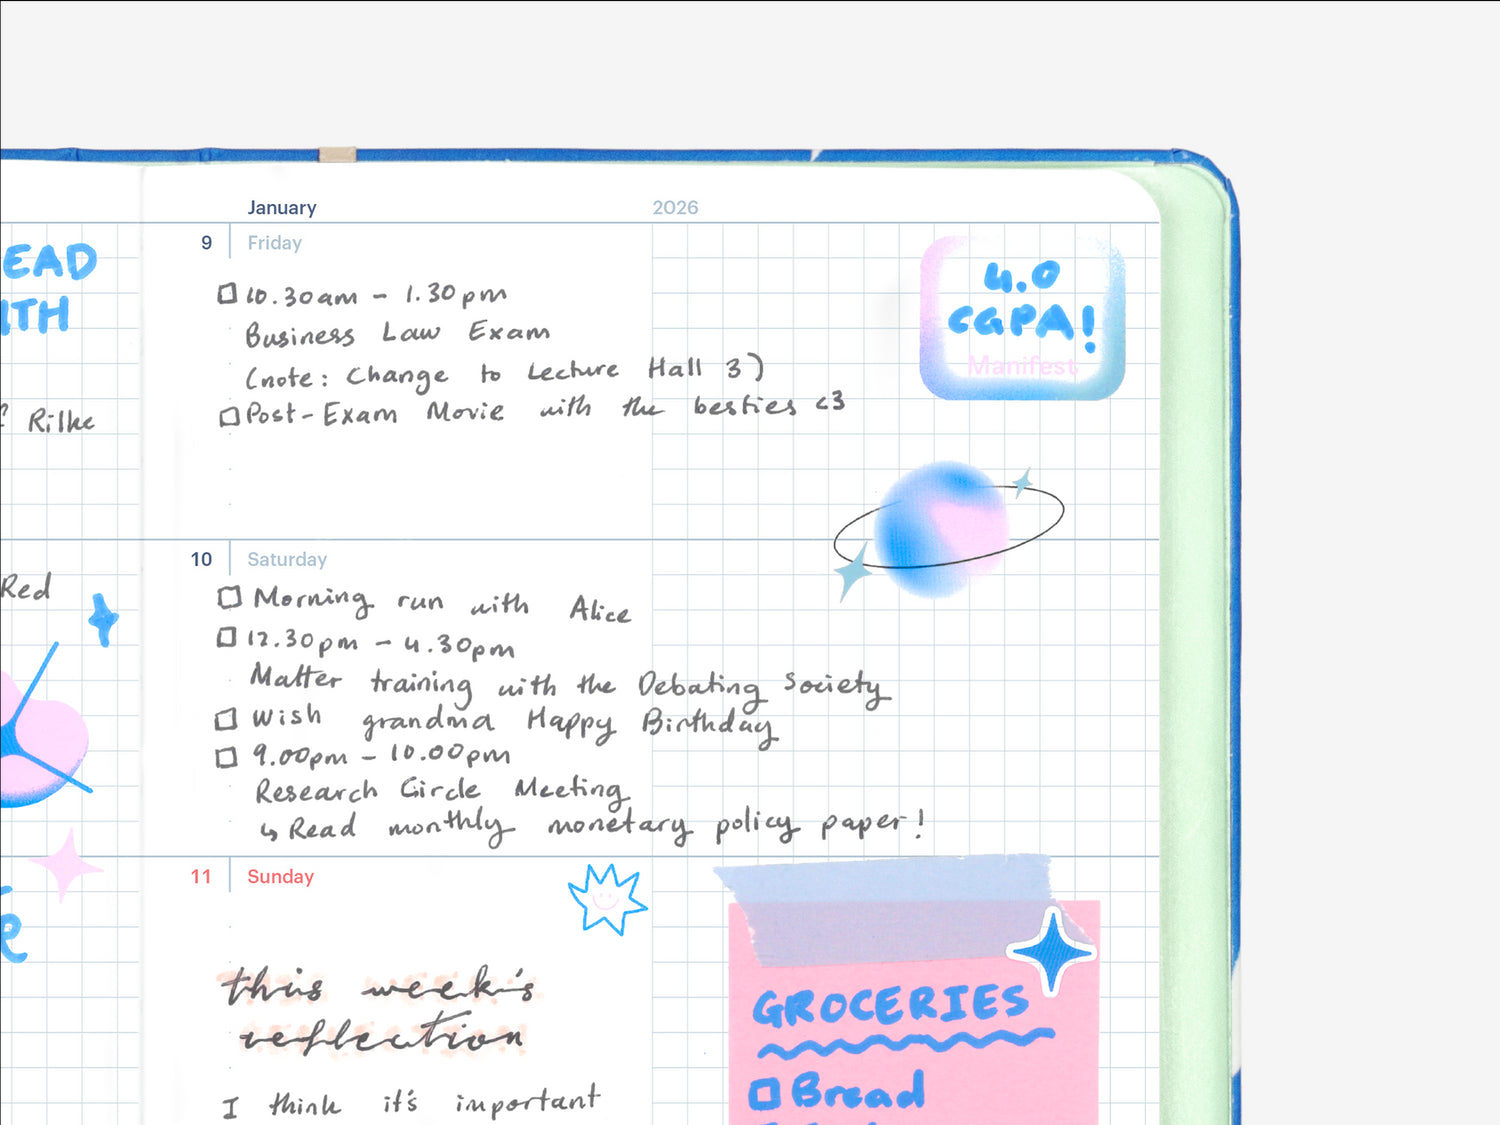 EAD
ITH
Rilke
Red
January 2026
9 Friday
10.30am - 1.30pm
Business Law Exam
(note: Change to Lecture Hall 3)
Post-Exam Movie with the besties <3
4.0
CGPA!
Manifest
10 Saturday
Morning run with Alice
12.30pm - 4.30pm
Matter training with the Debating Society
Wish grandma Happy Birthday
9.00pm - 10.00pm
Research Circle Meeting
↳ Read monthly monetary policy paper!
11 Sunday
this week's
reflection
I think it's important
GROCERIES
Bread